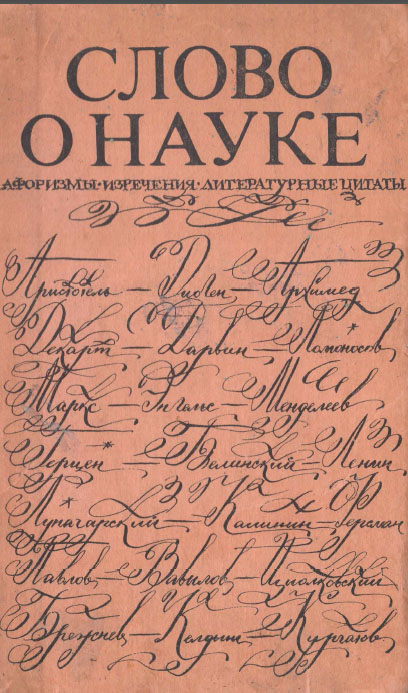 СЛОВО
О НАУКЕ
АФОРИЗМЫ·ИЗРЕЧЕНИЯ·ЛИТЕРАТУРНЫЕ ЦИТАТЫ
Аристотель — Диоген — Архимед
Декарт — Дарвин — Ломоносов
Маркс — Энгельс — Менделеев
Герцен — Белинский — Ленин
Луначарский — Калинин — Дзержинский
Павлов — Вавилов — Циолковский
Брежнев — Келдыш — Курчатов